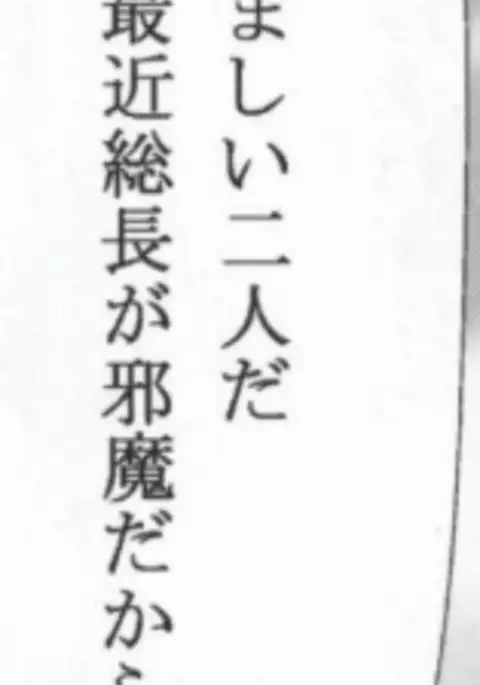 ましい二人だ
最近総長が邪魔だから